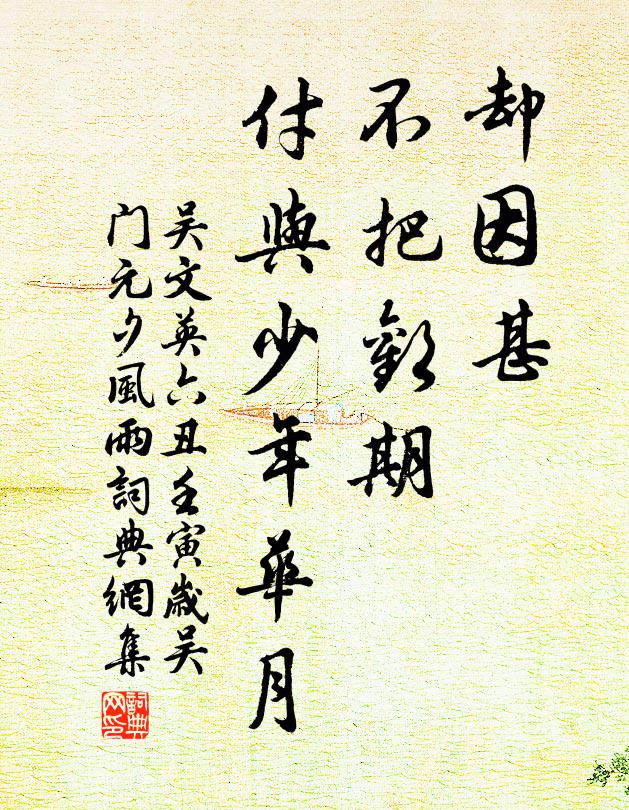 却因甚
不把歡期
付與少年華月
吴文英六丑壬寅歲吴
门元夕風雨詞典網集
詞典
网印